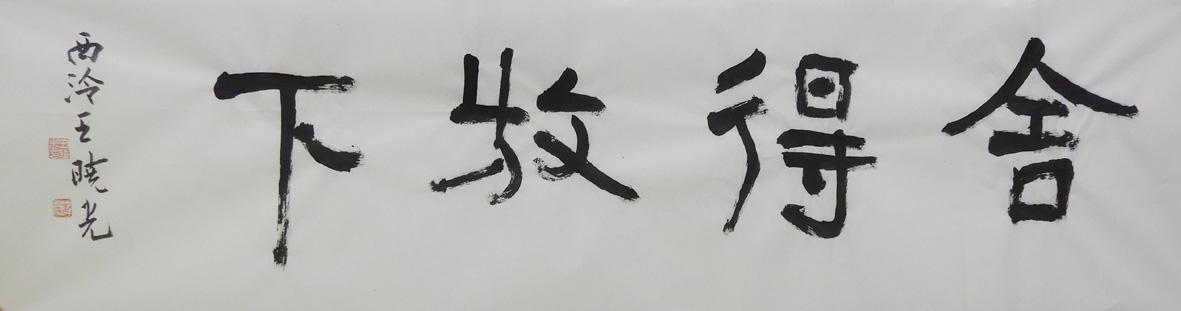 舍得放下
西泠王晓光